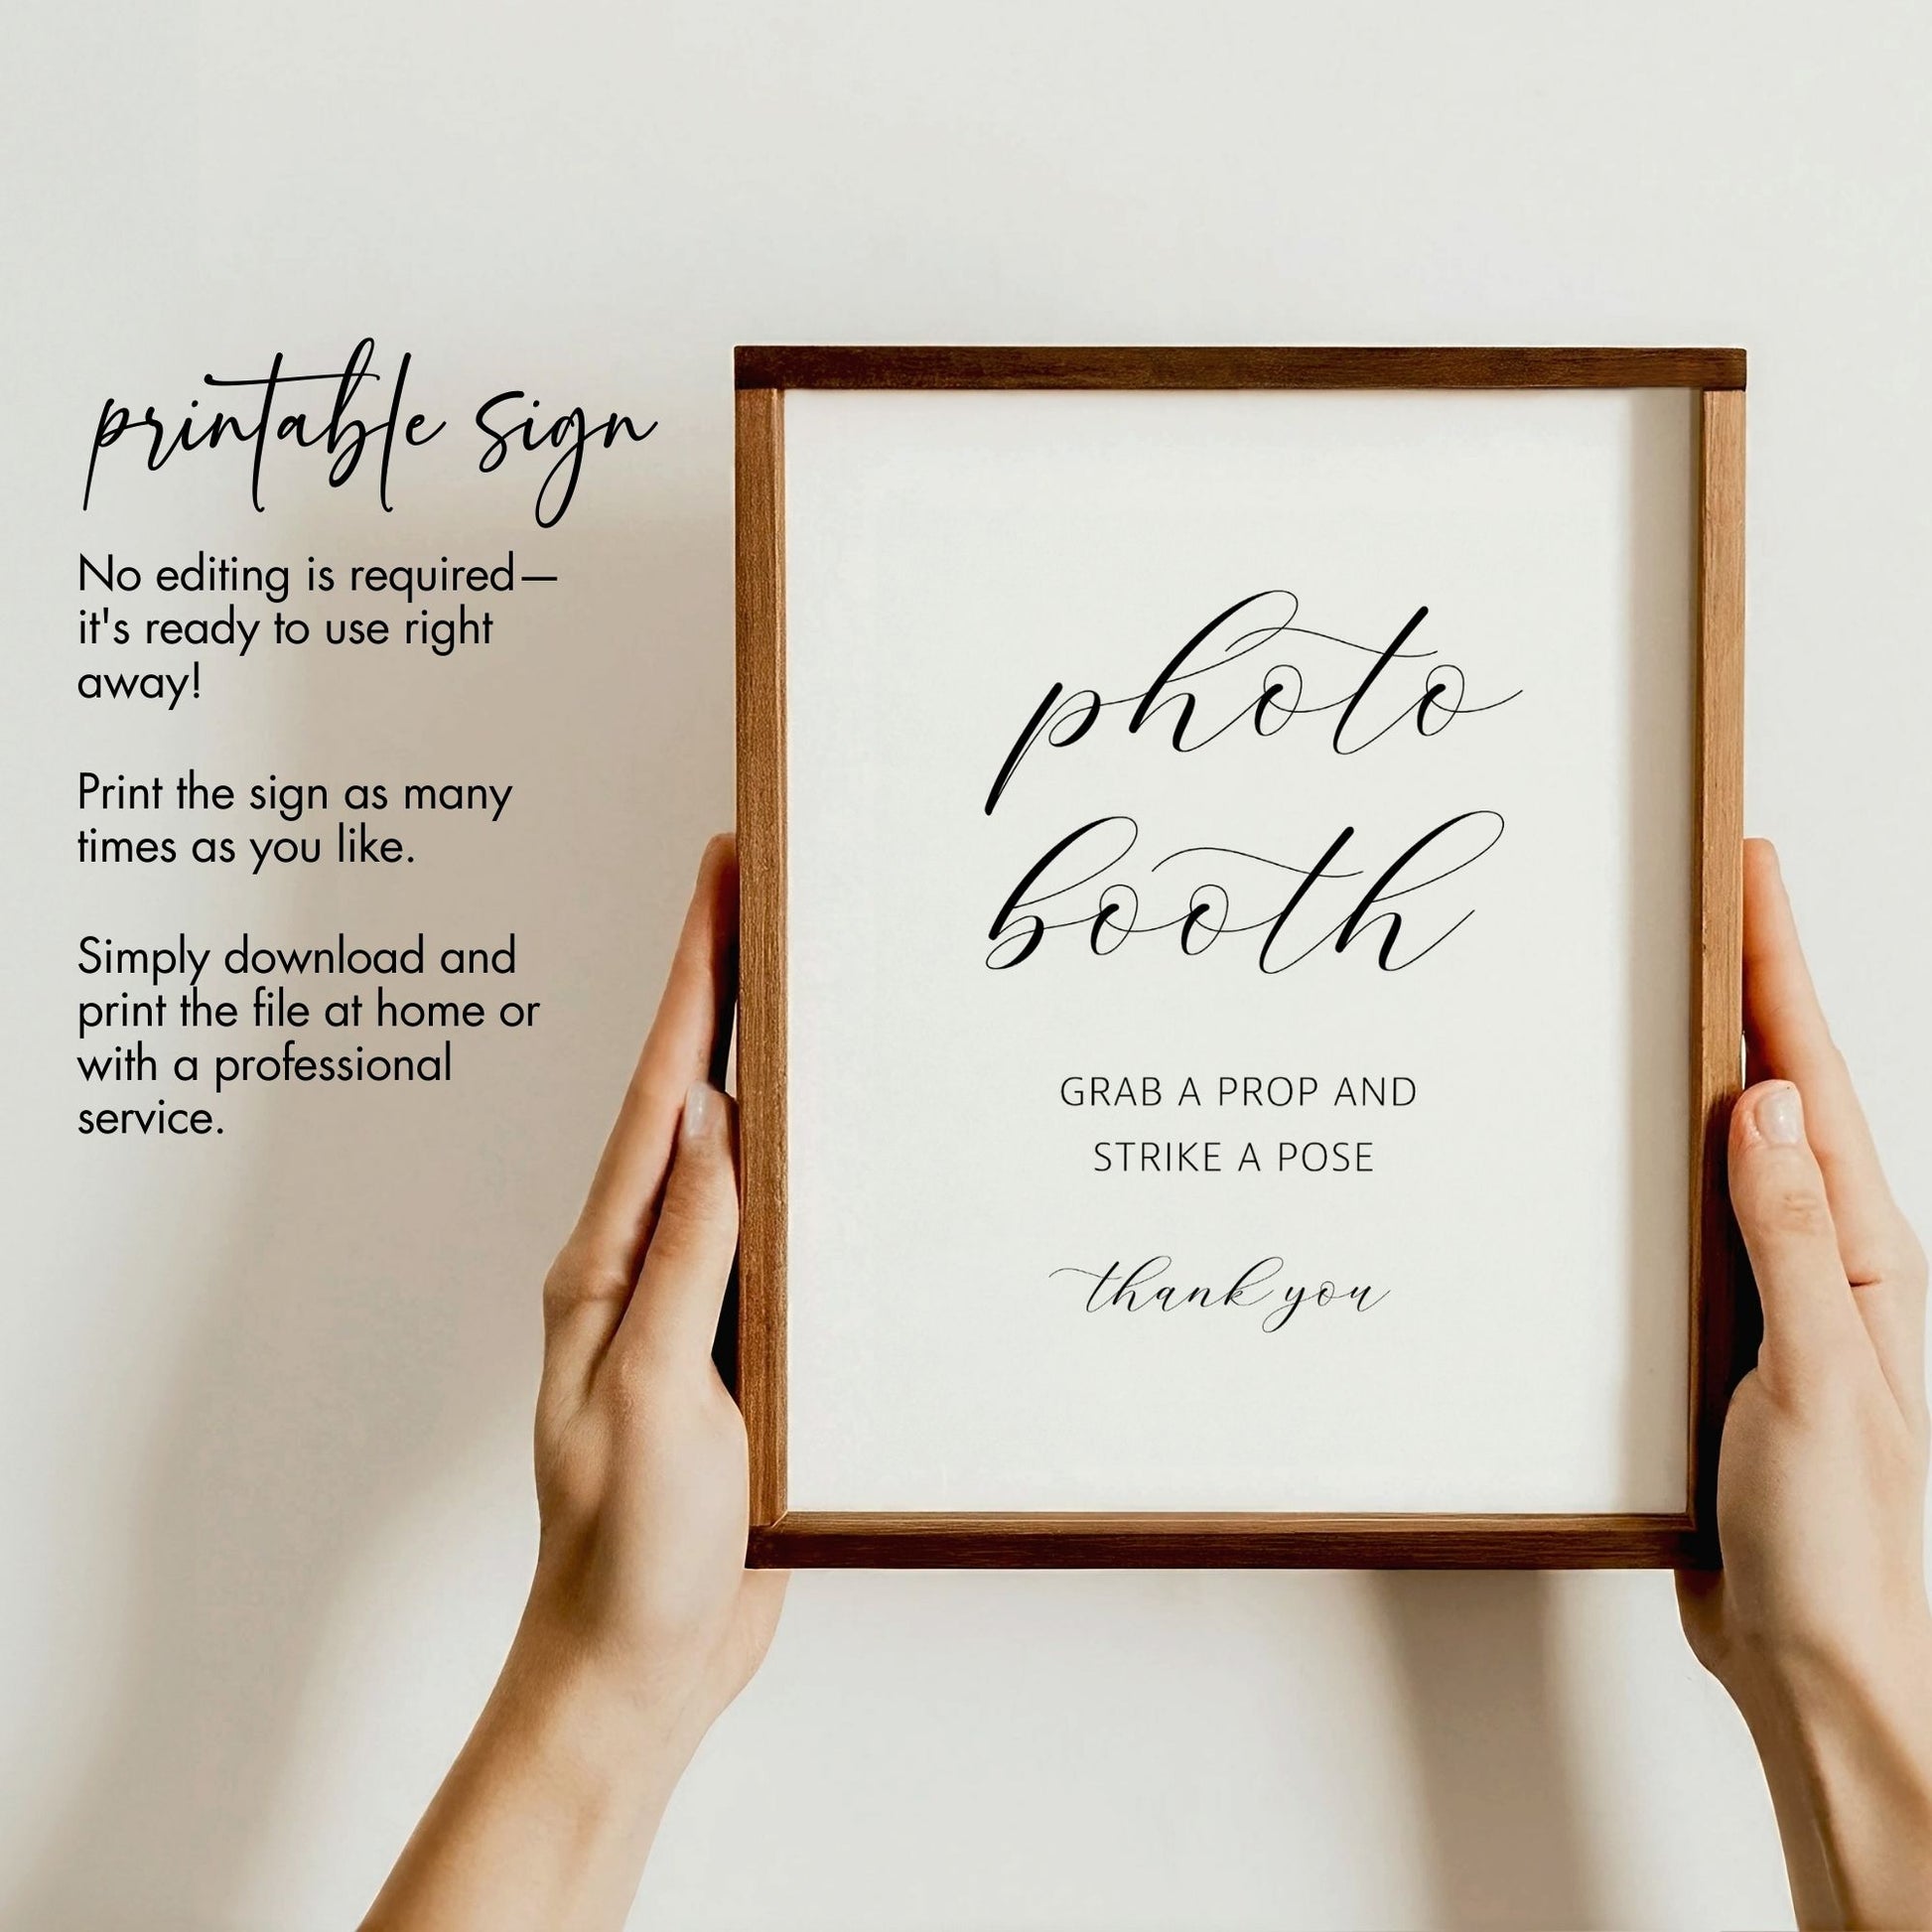 printable sign
No editing is required—
it's ready to use right
away!
Print the sign as many
times as you like.
Simply download and
print the file at home or
with a professional
service.
photo
booth
GRAB A PROP AND
STRIKE A POSE
thank you